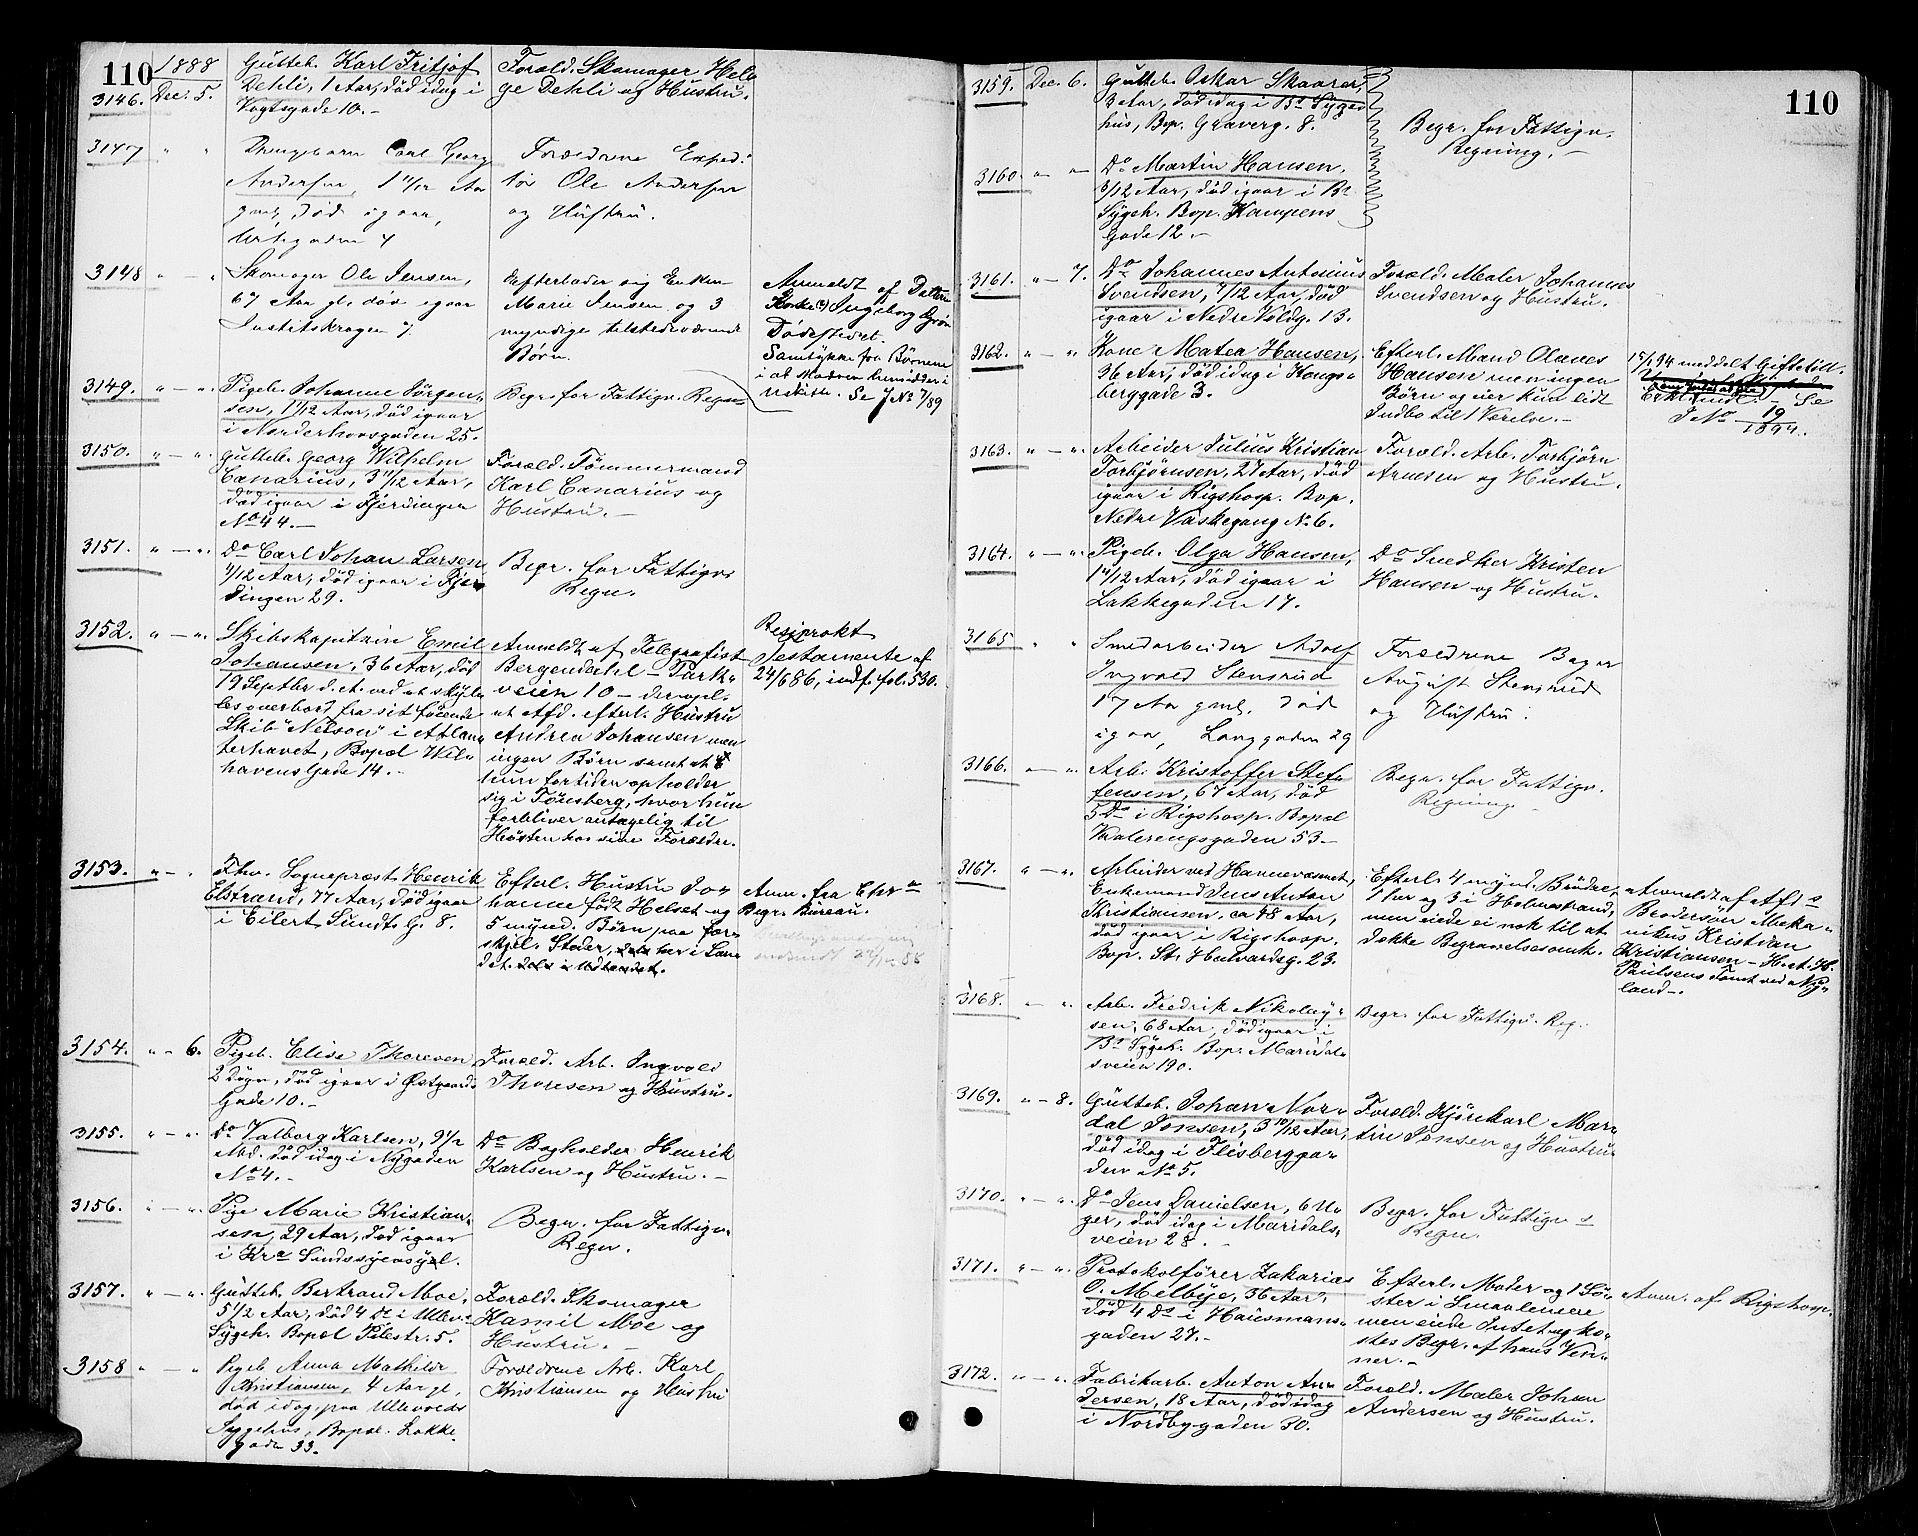 110
1888
3146. Dec. 5.
Gutteb. Karl Fritjof
Dehli, 1 Aar, död idag i
Vogtsgade 10.-
Foræld. Skomager Hel-
ge Dehli og Hustru.
3147 " "
Drengebarn Carl Georg
Andersen, 1 11/12 Aar
gml, död igaar,
Urtegaden 4
Forældrene Exped-
itör Ole Andersen
og Hustru.
3148 " - "
Skomager Ole Jensen,
67 Aar gl. död igaar
7
Efterlader sig Enken
Marie Jensen og 3
myndige tilstedeværende
Börn.
Anmeldt af Datter
Ingeborg
Dödsfaldet.
Samtykke fra Börnene
i at Moderen hensidder i
uskifte. Se J No 7/89
3149. " - ".
Pigeb. Johanne Jörgen-
sen, 1 1/12 Aar, död igaar
i Norderhovsgaden 25.
Begr. for Fattigv. Regn.
3150. " - ".
Gutteb. Georg Wilhelm
Canarius, 3 11/12 Aar,
död igaar i Fjerdingen
No 44.-
Foræld. Tömmermand
Karl Canarius og
Hustru.-
3151. " - ".
Do Carl Johan Larsen
1/12 Aar, död igaar i Fjer-
dingen 29.
Begr. for Fattigv.
Regn.
3152. " - ".
Skibskaptain Emil
Johansen, 36 Aar, död
19 Septbr d.A. ved at skyl-
les overbord fra sit förende
Skib "Nelson" i Atlan-
terhavet, Bopæl Wil-
havens Gade 14.-
Anmeldt af Telegrafist
Bergendahl - Park-
veien 10 - der opl.
at Afd. efterl. Hustru
Andrea Johansen men
ingen Börn samt at
hun for tiden opholder
sig i Tönsberg, hvor hun
forbliver antagelig til
Hösten hos sine Forældre.
Resiprokt
Testamente af
24/6 86, indf. fol. 530.
3153. " - ".
Fhv. Sogneprest Henrik
Elstrand, 77 Aar, död igaar
i Eilert Sundts G. 8.
Efterl. Hustru Jo-
hanne födt Helset og
5 mynd. Börn paa for-
skjel. Steder, her i Lan-
det
Anm. fra Chra
Begr. Bureau.
3154. " - 6.
Pigeb. Elise Thoresen
2 Dögn, död igaar i Östgaards
Gade 10.-
Foræld. Arb. Ingvald
Thoresen og Hustru.
3155. " - ".
Do Valborg Karlsen, 9 1/2
Md. död idag i Nygaden
No 4.-
Do Bogholder Henrik
Karlsen og Hustru.-
3156. " - ".
Pige Marie Kristian-
sen, 29 Aar, död igaar
i Kra Sindssygeasyl.
Begr. for Fattigv.
Regn.
3157. " - ".
Gutteb. Bertrand Moe,
5 1/2 Aar, död 4 Ds i Ullev.
Sygeh. Bopæl Pilestr. 5.
Foræld. Skomager
Hamil Moe og
Hustru.-
3158 " - "
Pigeb. Anna Mathilde
Kristiansen, 4 Aar gl.
död idag paa Ullevolds
Sygehus, Bopæl. Lakke-
gade 33.
Forældrene Arb. Karl
Kristiansen og Hustru
110
3159. Dec. 6.
Gutteb. Oskar Skaarer,
3 Aar, död idag i Bs Syge-
hus, Bop. Graverg. 8.
Begr. for Fattigv.
Regning.-
3160. " - "
Do Martin Hansen,
3/12 Aar, död igaar i Bs
Sygeh. Bop. Kampens
Gade 12.-
3161. " - 7.
Do Johannes Antonius
Svendsen, 7/12 Aar, död
igaar i Nedre Voldg. 13.
Foræld. Maler Johannes
Svendsen og Hustru.
3162. " - "
Kone Matea Hansen,
36 Aar, död idag i Kongs-
berggade 3.
Efterl. Mand Olaves
Hansen men ingen
Börn og eier kun lidt
Indbo til 1 Værelse.-
15/1 94 meddelt Giftetill.
Se
J No 19/1894.
3163. " - ".
Arbeider Julius Kristian
Torbjörnsen, 27 Aar, död
igaar i Rigshosp. Bop.
Nedre Vaskegang No 6.
Foræld. Arb. Torbjörn
Arnesen og Hustru.
3164. " - ".
Pigeb. Olga Hansen,
1 4/12 Aar, död igaar i
Lakkegaden 17.
Do Snedker Kristen
Hansen og Hustru.
3165 " "
Smedarbeider Adolf
Ingvald Stensrud
17 Aar gml, död
igaar, Langgaden 29
Forældrene Bager
August Stensrud
og Hustru.
3166. " - ".
Arb. Kristoffer Stef-
fensen, 67 Aar, död
5 Ds i Rigshosp. Bopæl
Vaalerengsgaden 53.-
Begr. for Fattigv.
Regning.
3167. " - ".
Arbeider ved Havnevæsnet,
Enkemand Jens Anton
Kristiansen, ca 48 Aar,
död igaar i Rigshosp.
Bop. St. Halvardsg. 23.
Efterl. 4 mynd. Brödre,
1 her og 3 i Holmestrand,
men eiede ei nok til at
dække Begravelsesomk.
Anmeldt af Afd s
Brodersön Meka-
nikus Kristian
Kristiansen - H. A. H.
Paulsens Tomt ved Ny-
land.-
3168. " - ".
Arb. Fredrik Nikolay-
sen, 68 Aar, död igaar i
Bs Sygeh. Bop. Maridals-
veien 190.
Begr. for Fattigv. Reg.
3169. " - 8.
Gutteb. Johan Nor-
dal Jonsen, 3 10/12 Aar,
död idag i Flisberggа-
den No 5.
Foræld. Kjörekarl Mar-
tin Jonsen og Hustru
3170. " - ".
Do Jens Danielsen, 6 U-
ger, död idag i Maridals-
veien 28.
Begr. for Fattigv s
Regn.
3171. " - ".
Protokolförer Zakarias
O. Melbye, 36 Aar,
död 4 Ds i Hausmans-
gaden 27.-
Efterl. Moder og 1 Sö-
ster i Smaalenene
men eiede Intet og ko-
stes Begr. af hans Ven-
ner.-
Anm. af Rigshosp.
3172. " - ".
Fabrikarb. Anton An-
dersen, 18 Aar, död idag
i Nordbygaden 30.
Foræld. Maler Johan
Andersen og Hustru.